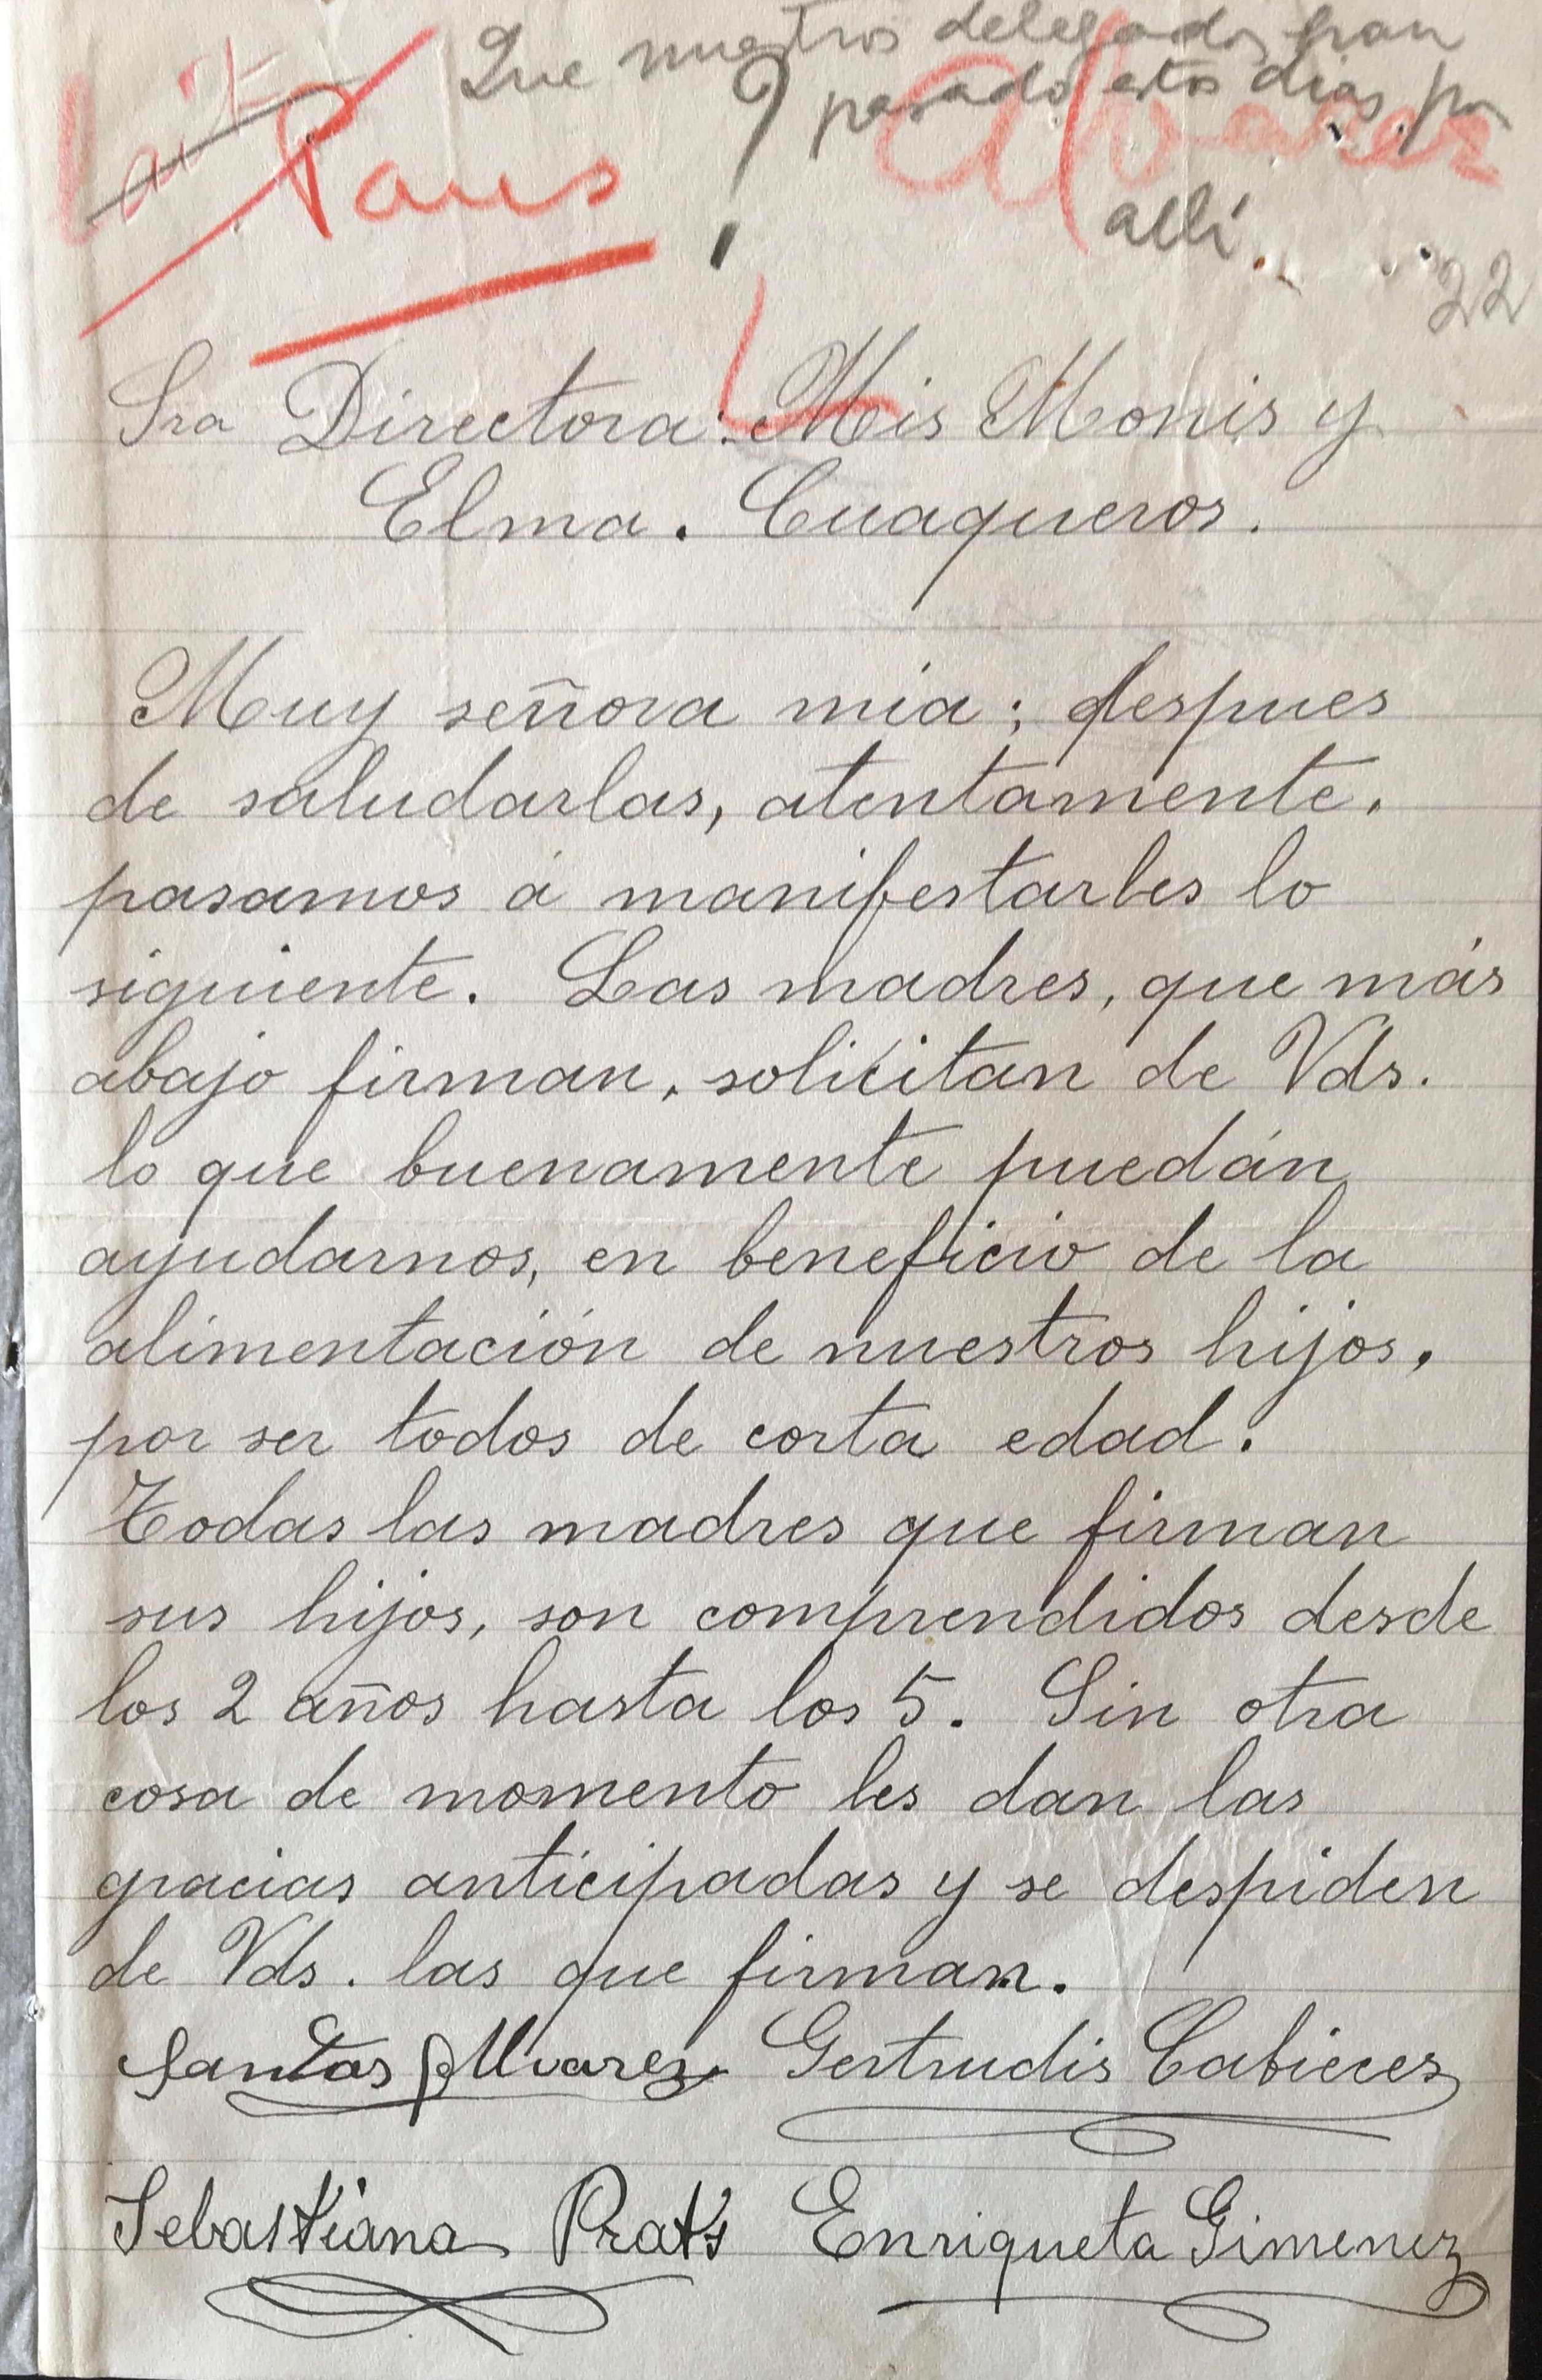 Que nuestros delegados han
pasado estos dias por
allí.
Lait
Paus
Alvarez
22
Sra Directora: Mis Monis y
Elma. Cuaqueros.
Muy señora mia; despues
de saludarlas, atentamente,
pasamos á manifestarles lo
siguiente. Las madres, que más
abajo firman, solicitan de Vds.
lo que buenamente puedán
ayudarnos, en beneficio de la
alimentación de nuestros hijos,
por ser todos de corta edad.
Todas las madres que firman
sus hijos, son comprendidos desde
los 2 años hasta los 5. Sin otra
cosa de momento les dan las
gracias anticipadas y se despiden
de Vds. las que firman.
Santas Alvarez Gertrudis Cabieces
Sebastiana Prats Enriqueta Gimenez